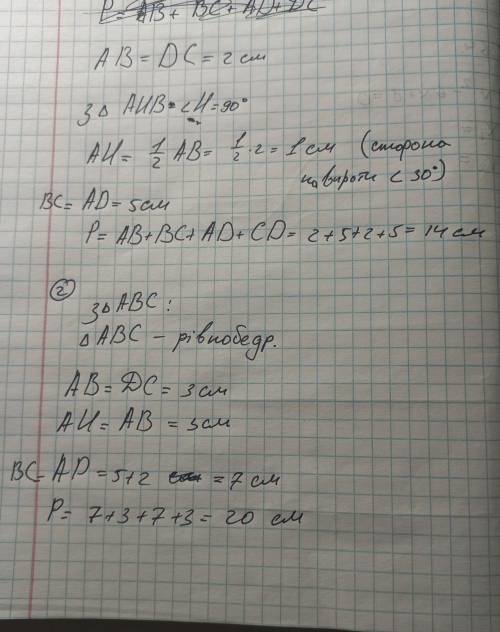 P= AB + BC + AD + DC
AB = DC = 2 см
З △ AHB • <H=90°
AH = 1/2 AB = 1/2 · 2 = 1 см (сторона
навпроти < 30°)
BC= AD = 5 см
P= AB+BC+AD+CD= 2+5+2+5= 14 см
②
З △ ABC :
△ ABC – рівнобедр.
AB = DC = 3 см
AH = AB = 3см
BC= AD = 5+2 = 7 см
P= 7+3+7+3= 20 см